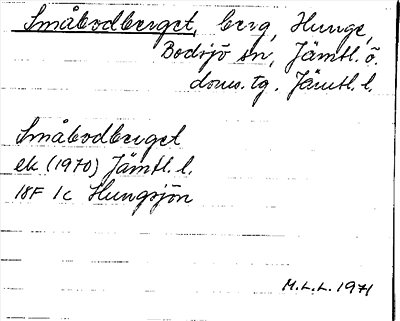 Småbodberget, berg, Hunge,
Bodsjö sn, Jämtl. ö.
doms.tg. Jämtl. l.
Småbodberget
ek (1970) Jämtl. l.
18F 1c Hungsjön
M.L.L. 1971